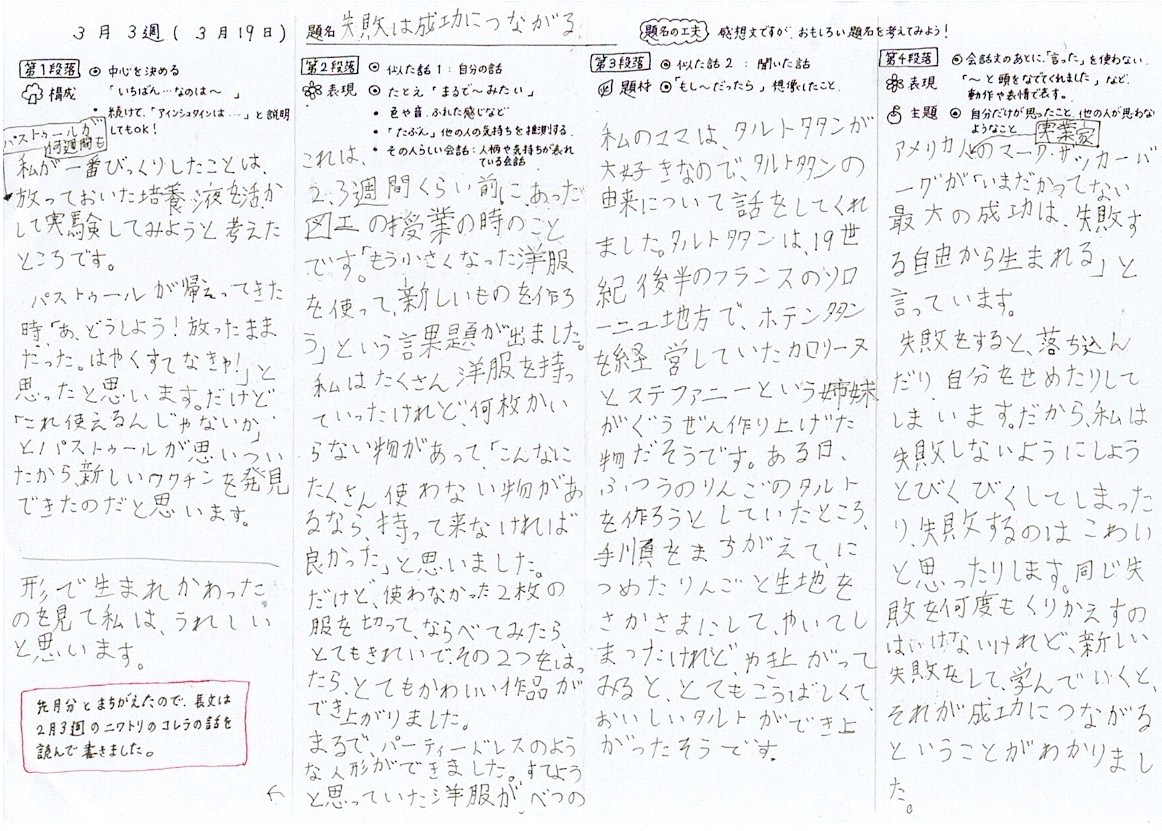 3月3週(3月19日)
題名 失敗は成功につながる
題名の工夫 感想文ですが、おもしろい題名を考えてみよう！
第1段落 ◎ 中心を決める
構成 「いちばん…なのは〜　」
• 続けて、「アインシュタインは…」と説明
してもOK！
パストゥールが
何週間も
私が一番びっくりしたことは、
放っておいた培養液を活か
して実験してみようと考えた
ところです。
パストゥールが帰ってきた
時「あ、どうしよう！放ったまま
だった。はやくすてなきゃ!」と
思ったと思います。だけど
「これ使えるんじゃないか」
とパストゥールが思いつい
たから、新しいワクチンを発見
できたのだと思います。
第2段落 ◎ 似た話1：自分の話
表現 ◎ たとえ「まるで〜みたい」
• 色や音、ふれた感じなど
• 「たぶん」他の人の気持ちを推測する
• その人らしい会話：人柄や気持ちが表れ
ている会話
これは、
2、3週間くらい前に、あった
図工の授業の時のこと
です。「もう小さくなった洋服
を使って、新しいものを作ろ
う」という課題が出ました。
私はたくさん洋服を持っ
ていったけれど、何枚かい
らない物があって、「こんなに
たくさん使わない物があ
るなら、持って来なければ
良かった」と思いました。
だけど、使わなかった2枚の
服を切って、ならべてみたら、
とてもきれいでその2つをはっ
たら、とてもかわいい作品が
でき上がりました。
まるで、パーティードレスのよう
な人形ができました。すてよう
と思っていた洋服が、べつの
形で生まれかわった
のを見て私は、うれしい
と思います。
先月分とまちがえたので、長文は
2月3週のニワトリのコレラの話を
読んで書きました。
第3段落 ◎ 似た話2：聞いた話
題材 ◎「もし〜だったら」想像したこと
私のママは、タルトタタンが
大好きなので、タルトタタンの
由来について話をしてくれ
ました。タルトタタンは、19世
紀後半のフランスのソロ
ーニュ地方で、ホテルタタン
を経営していたカロリーヌ
とステファニーという姉妹
がぐうぜん作り上げた
物だそうです。ある日、
ふつうのりんごのタルト
を作ろうとしていたところ、
手順をまちがえて、に
つめたりんごと生地を
さかさまにして、やいてし
まったけれど、やき上がって
みると、とてもこうばしくて、
おいしいタルトができ上
がったそうです。
第4段落 ◎ 会話文のあとに、「言った」を使わない
表現 「〜と頭をなでてくれました」など、
動作や表情で表す。
主題 ◎ 自分だけが思ったこと、他の人が思わな
ようなこと
実業家
アメリカ人のマーク・ザッカーバ
ーグが「いまだかつてない
最大の成功は、失敗す
る自由から生まれる」と
言っています。
失敗をすると、落ち込ん
だり、自分をせめたりして
しまいます。だから、私は
失敗しないようにしよう
とびくびくしてしまった
り、失敗するのはこわい
と思ったりします。同じ失
敗を何度もくりかえすの
はいけないけれど、新しい
失敗をして、学んでいくと、
それが成功につながる
ということがわかりまし
た。